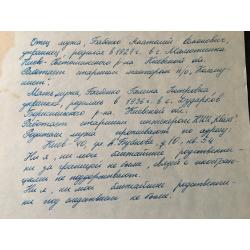 Отец мужа, Бабенко Анатолий Семенович,
украинец, родился в 1927г. в с. Малютянка
Киево-Святошинского р-на Киевской обл.
Работает старшим мастером п/о,
Мать мужа, Бабенко Галина Петровна
украинка, родилась в 1936г. в с. Бударков
Бориспольского р-на Киевской обл.
Работает старшим инженером
Родители мужа проживают по адресу:
Киев-40, ул. А. Бубнова, д. 10, кв. 54
Ни я, ни мои ближайшие родственни-
ки за границей не были, связей с иностран-
цами не поддерживают.
Ни я, ни мои ближайшие родственни-
ки под следствием не были.